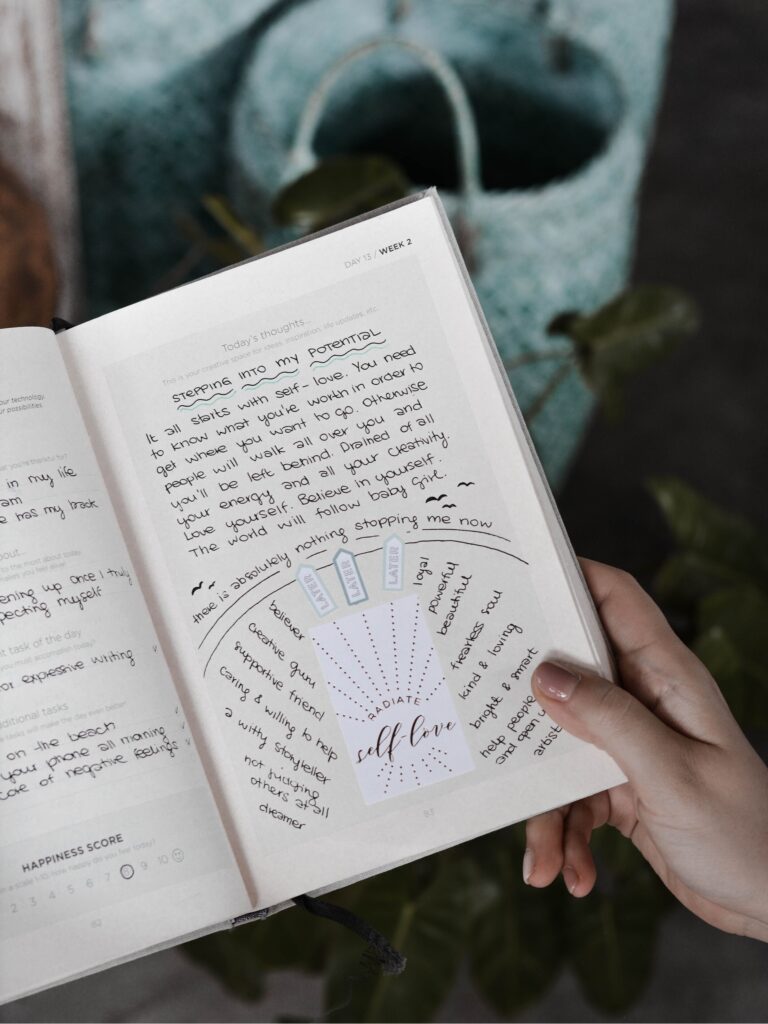 ur technology,
ur possibilities.
in my life
am
e has my back
bout...
ening up once I truly
pecting myself
t task of the day
or expressive writing
ditional tasks
on the beach
your phone all morning
care of negative feelings
HAPPINESS SCORE
2 3 4 5 6 7 8 9 10
82
DAY 13 / WEEK 2
Today's thoughts...
This is your creative space for ideas, inspiration, life updates, etc.
STEPPING INTO MY POTENTIAL
It all starts with self-love. You need
to know what you're worth in order to
get where you want to go. Otherwise
people will walk all over you and
you'll be left behind. Drained of all
your energy and all your creativity.
Love yourself. Believe in yourself.
The world will follow baby girl.
there is absolutely nothing stopping me now
LATER
LATER
LATER
believer
creative guru
supportive friend
caring & willing to help
a witty storyteller
not judging
others at all
dreamer
RADIATE
self-love
loyal
powerful
beautiful
fearless soul
kind & loving
bright & smart
help people
and open
artist
83